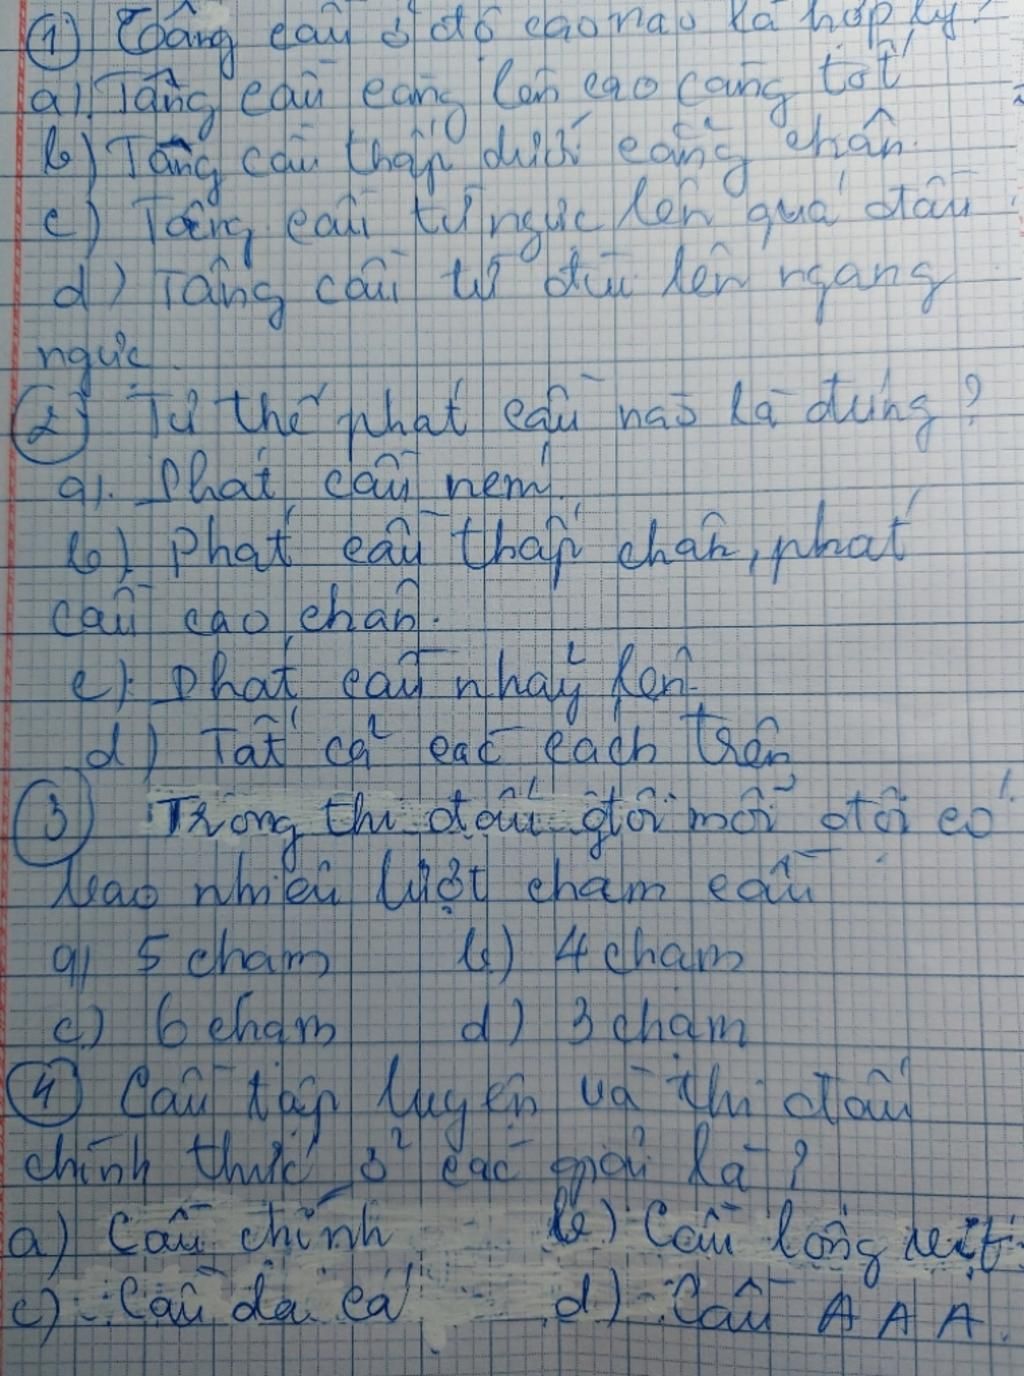 ① Tâng cầu ở độ cao nào là hợp lý?
a) Tâng cầu càng lên cao càng tốt
b) Tâng cầu thấp dưới cẳng chân.
c) Tâng cầu từ ngực lên quá đầu
d) Tâng cầu từ đùi lên ngang
ngực.
② Tư thế phát cầu nào là đúng?
a). Phát cầu ném.
b) Phát cầu thấp chân, phát
cầu cao chân.
c). Phát cầu nhảy lên.
d) Tất cả các cách trên
③ Trong thi đấu đôi mỗi đội có
bao nhiêu lượt chạm cầu
a) 5 chạm b) 4 chạm
c) 6 chạm d) 3 chạm
④ Cầu tập luyện và thi đấu
chính thức ở các giải là?
a) Cầu chinh b) Cầu lông
c) Cầu đá cá d) Cầu A A A.